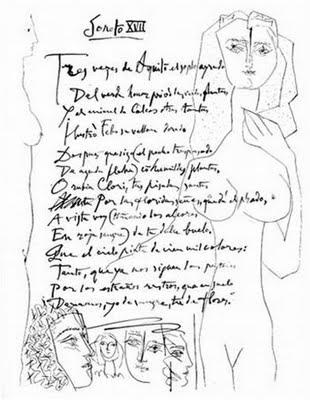 Soneto XVII
Tres veces de Aquilō el soplo ayrado
Del verde honor privó las verdes plantas
Y al animal de Colcos otras tantas
Ilustró Febo su vellon dorado
Despues que sigo (el pecho traspasado
De aguda flecha) cō humildes plantas,
O rubia Clori, tus pisadas santas
Por las floridas señas, que da el prado,
A vista voy (tiñendo los alcores
En roja sangre) de tu dulce buelo,
Que el cielo pinta de cien mil colores:
Tanto, que ya nos siguen los pastores
Por los estraños rastros, que en suelo
Dexamos, yo de sangre, tu de flores.